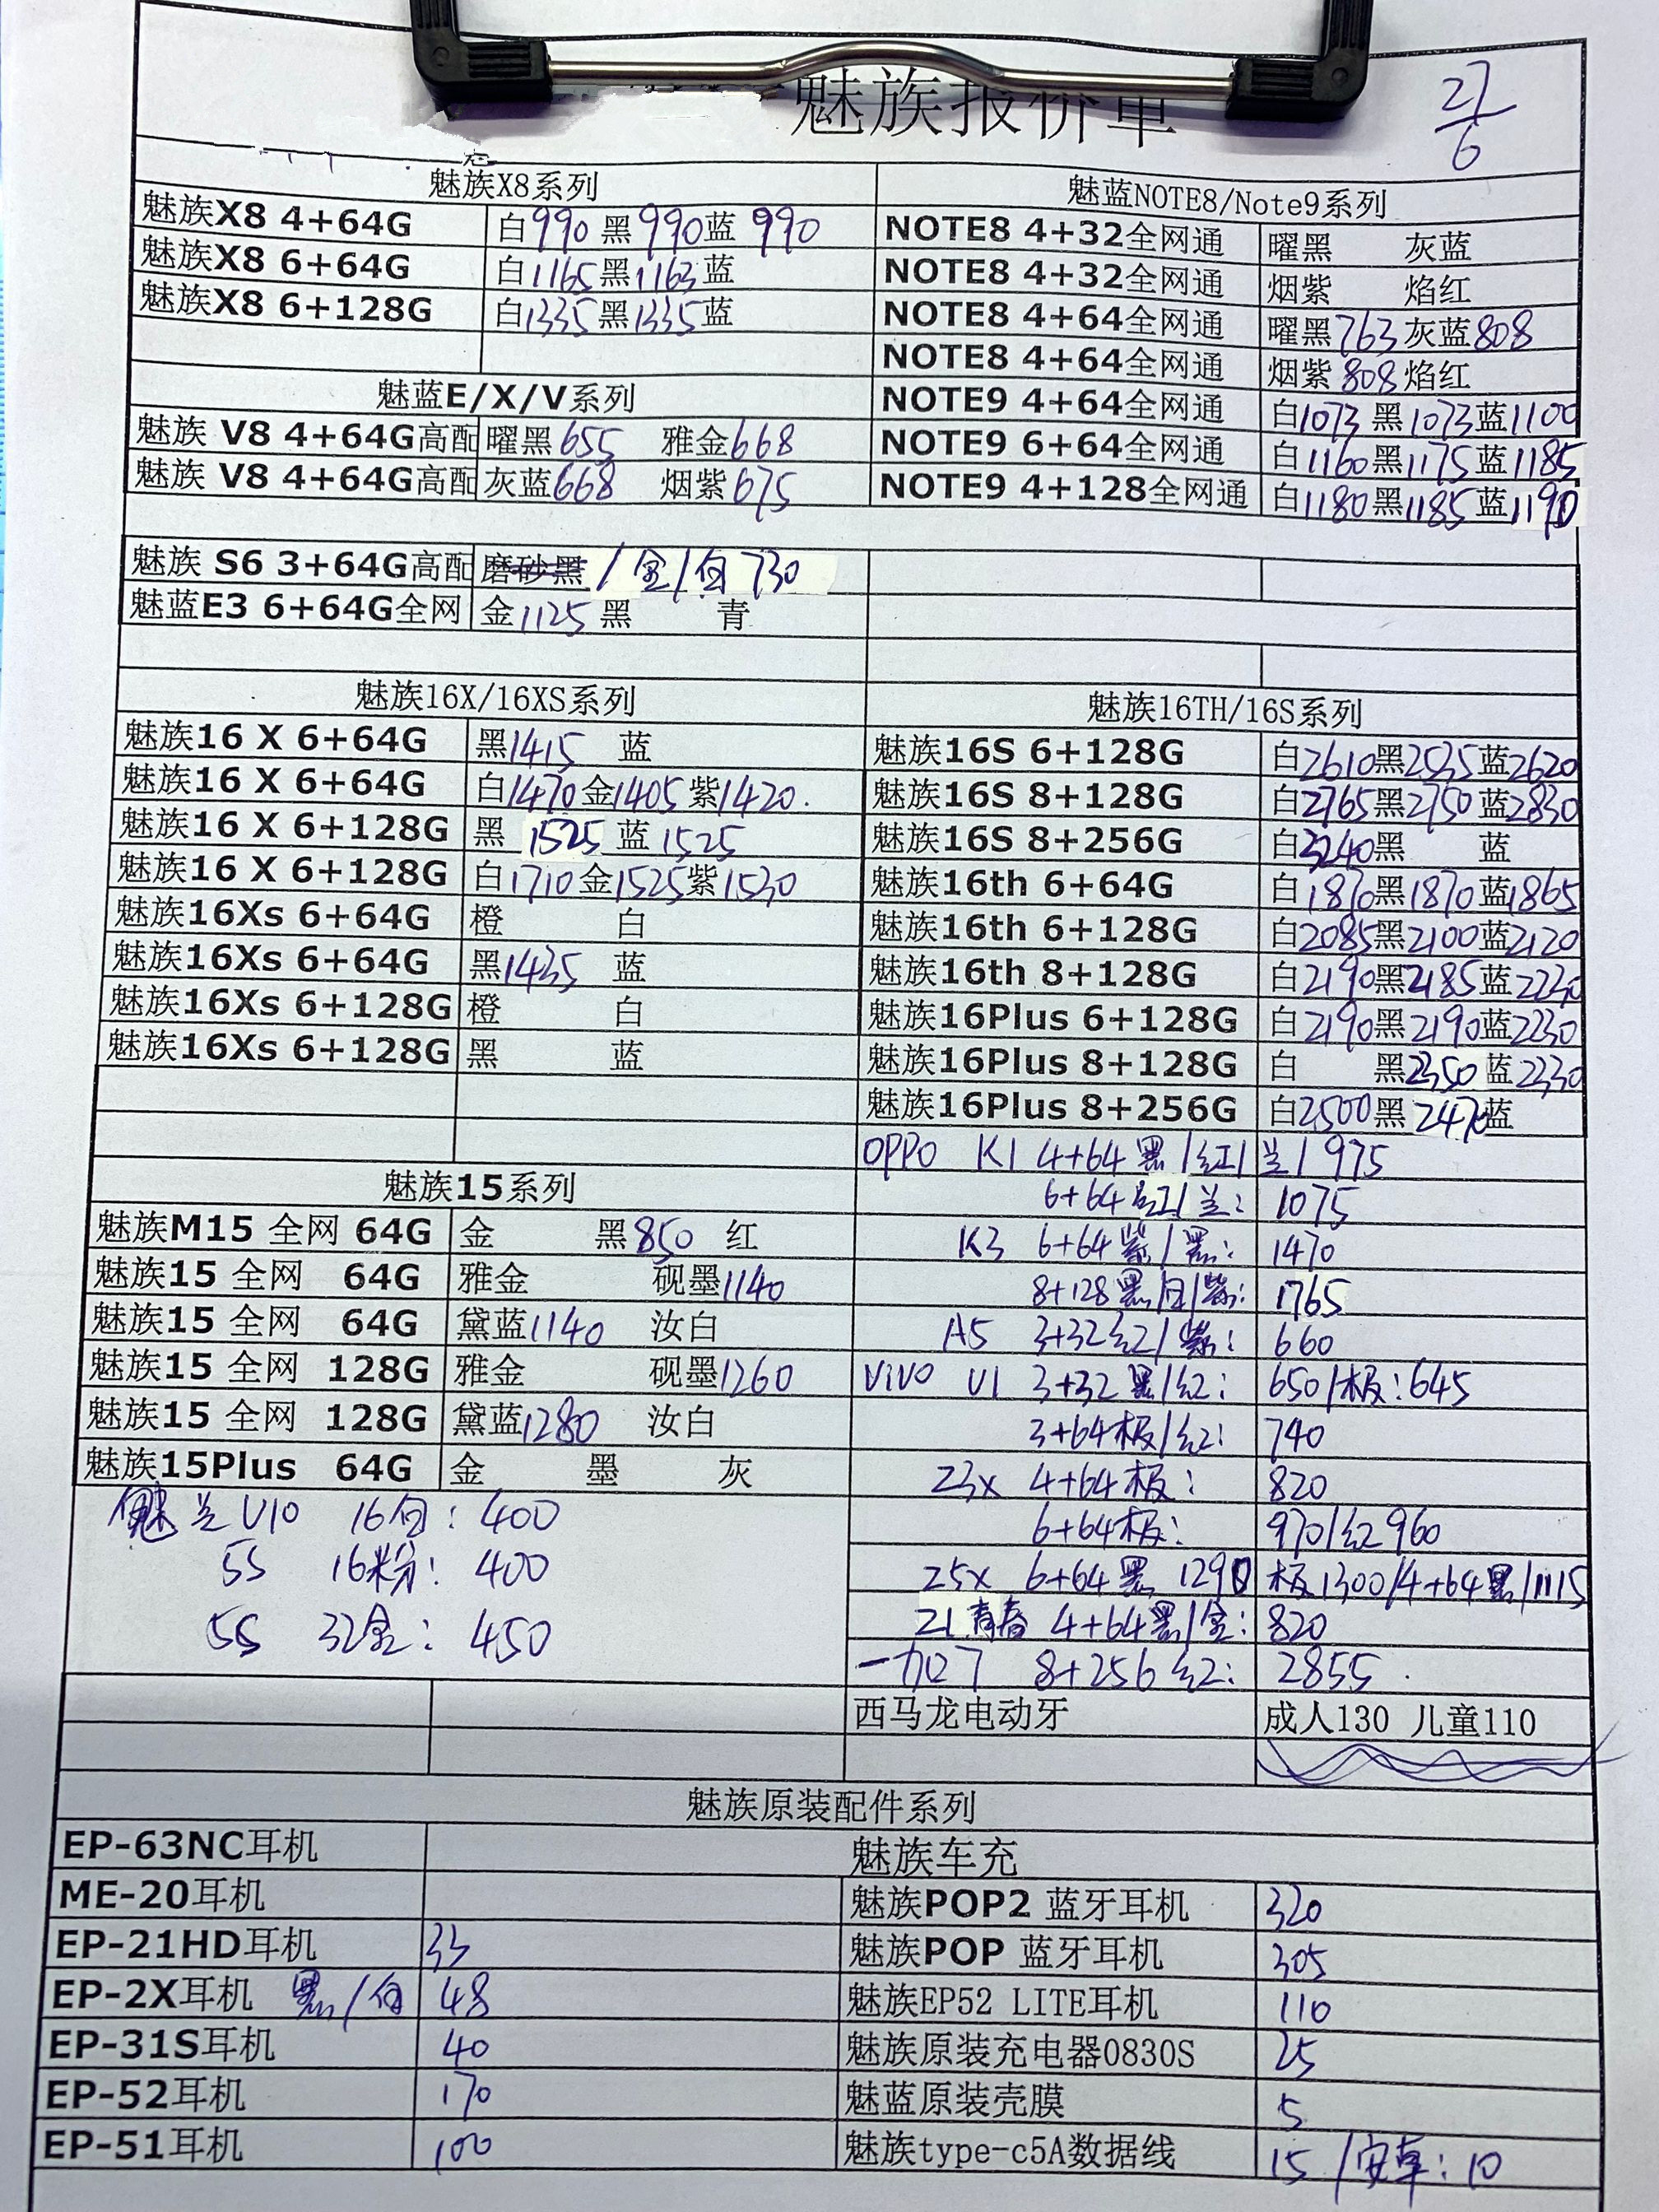 魅族报价单
27/6
魅族X8系列
魅族X8 4+64G 白990 黑990 蓝 990
魅族X8 6+64G 白1165 黑1163 蓝
魅族X8 6+128G 白1335 黑1335 蓝
魅蓝E/X/V系列
魅族 V8 4+64G高配 曜黑655 雅金668
魅族 V8 4+64G高配 灰蓝668 烟紫675
魅族 S6 3+64G高配 磨砂黑 / 金/白 730
魅蓝E3 6+64G全网 金1125 黑 青
魅蓝NOTE8/Note9系列
NOTE8 4+32全网通 曜黑 灰蓝
NOTE8 4+32全网通 烟紫 焰红
NOTE8 4+64全网通 曜黑763 灰蓝808
NOTE8 4+64全网通 烟紫 808 焰红
NOTE9 4+64全网通 白1073 黑1073 蓝1100
NOTE9 6+64全网通 白1160 黑1175 蓝1185
NOTE9 4+128全网通 白1180 黑1185 蓝1190
魅族16X/16XS系列
魅族16 X 6+64G 黑1415 蓝
魅族16 X 6+64G 白1470 金1405 紫1420.
魅族16 X 6+128G 黑 1525 蓝 1525
魅族16 X 6+128G 白1710 金1525 紫1530
魅族16Xs 6+64G 橙 白
魅族16Xs 6+64G 黑1435 蓝
魅族16Xs 6+128G 橙 白
魅族16Xs 6+128G 黑 蓝
魅族16TH/16S系列
魅族16S 6+128G 白2610 黑2535 蓝2620
魅族16S 8+128G 白2765 黑2750 蓝2830
魅族16S 8+256G 白3240 黑 蓝
魅族16th 6+64G 白1870 黑1870 蓝1865
魅族16th 6+128G 白2085 黑2100 蓝2120
魅族16th 8+128G 白2190 黑2185 蓝2230
魅族16Plus 6+128G 白2190 黑2190 蓝2230
魅族16Plus 8+128G 白 黑2350 蓝2330
魅族16Plus 8+256G 白2500 黑 2470 蓝
魅族15系列
魅族M15 全网 64G 金 黑850 红
魅族15 全网 64G 雅金 砚墨1140
魅族15 全网 64G 黛蓝1140 汝白
魅族15 全网 128G 雅金 砚墨1260
魅族15 全网 128G 黛蓝1280 汝白
魅族15Plus 64G 金 墨 灰
魅兰U10 16白: 400
5S 16粉: 400
5S 32金: 450
OPPO K1 4+64 黑/红/兰/ 975
6+64 红/兰: 1075
K3 6+64 紫/黑: 1470
8+128 黑/白/紫: 1765
A5 3+32红/紫: 660
ViVO U1 3+32 黑/红: 650/极:645
3+64极/红: 740
Z3x 4+64极: 820
6+64极: 970/红960
Z5x 6+64黑 1290 极1300/4+64黑/1115
Z1青春 4+64黑/金: 820
一加7 8+256 红: 2855.
西马龙电动牙 成人130 儿童110
魅族原装配件系列
EP-63NC耳机 魅族车充
ME-20耳机 魅族POP2 蓝牙耳机 320
EP-21HD耳机 33 魅族POP 蓝牙耳机 305
EP-2X耳机 黑/白 48 魅族EP52 LITE耳机 110
EP-31S耳机 40 魅族原装充电器0830S 25
EP-52耳机 170 魅蓝原装壳膜 5
EP-51耳机 100 魅族type-c5A数据线 15 /安卓: 10